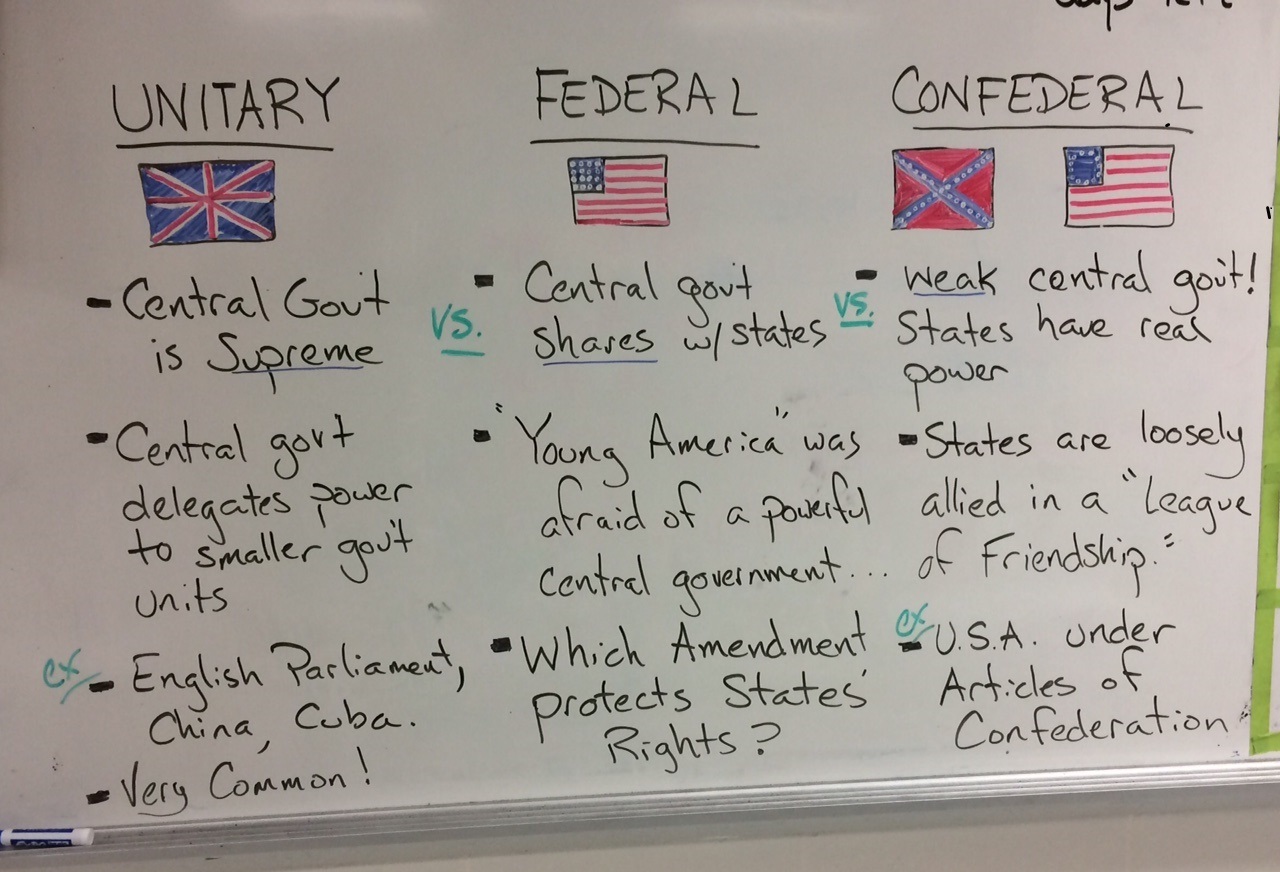 days left
UNITARY
- Central Gov't
is Supreme
- Central gov't
delegates power
to smaller gov't
units
ex - English Parliament,
China, Cuba.
- Very Common!
vs.
FEDERAL
- Central gov't
shares w/ states
- "Young America" was
afraid of a powerful
central government...
- Which Amendment
protects States'
Rights?
vs.
CONFEDERAL
- weak central gov't!
States have real
power
- States are loosely
allied in a "league
of Friendship."
ex - U.S.A. under
Articles of
Confederation